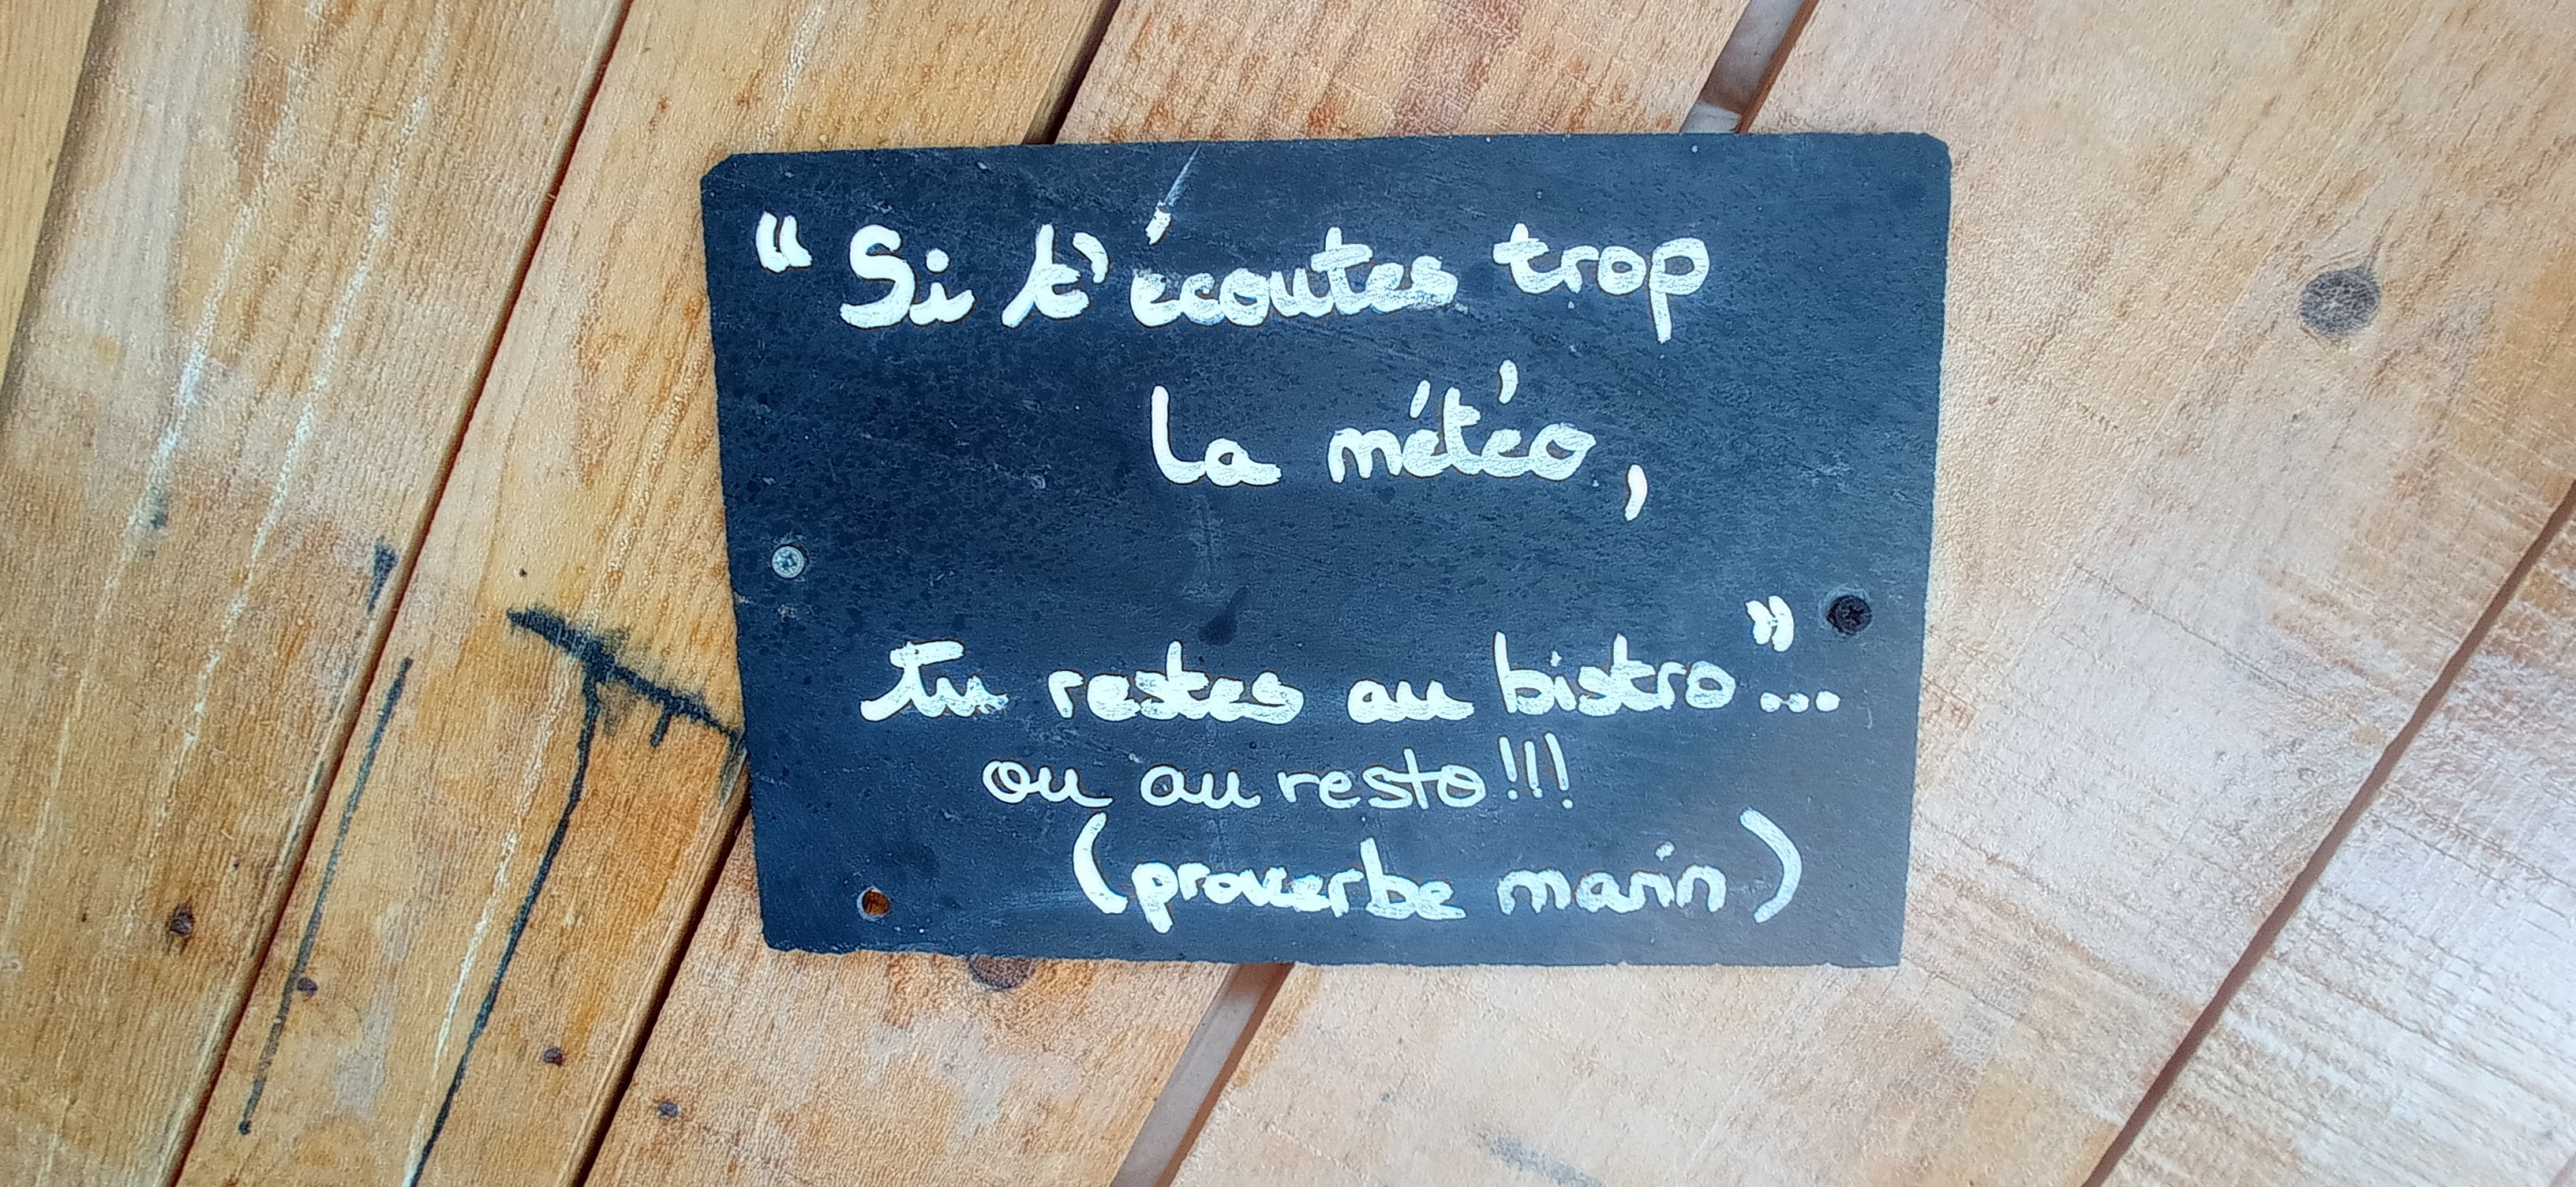 “ Si t'écoutes trop
la météo,
tu restes au bistro”...
ou au resto!!!
(proverbe marin)